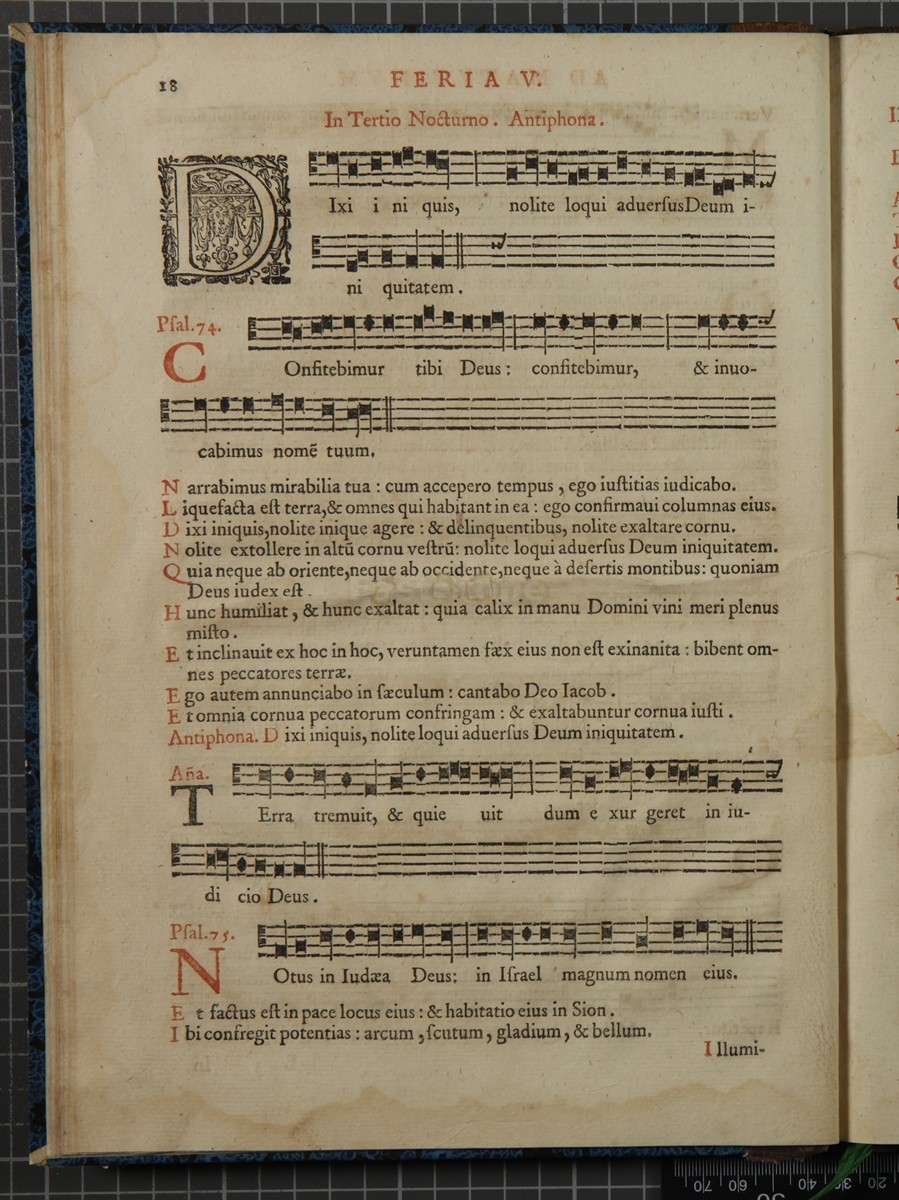 18
FERIA V.
In Tertio Nocturno. Antiphona.
DIxi i ni quis, nolite loqui aduerſusDeum i-
ni quitatem.
Pſal.74.
COnfitebimur tibi Deus: confitebimur, & inuo-
cabimus nomẽ tuum.
Narrabimus mirabilia tua: cum accepero tempus, ego iuſtitias iudicabo.
Liquefacta eſt terra,& omnes qui habitant in ea: ego confirmaui columnas eius.
Dixi iniquis,nolite inique agere: & delinquentibus, nolite exaltare cornu.
Nolite extollere in altũ cornu veſtrũ: nolite loqui aduerſus Deum iniquitatem.
Quia neque ab oriente,neque ab occidente,neque à deſertis montibus: quoniam
Deus iudex eſt.
Hunc humiliat, & hunc exaltat: quia calix in manu Domini vini meri plenus
miſto.
Et inclinauit ex hoc in hoc, veruntamen fæx eius non eſt exinanita: bibent om-
nes peccatores terræ.
Ego autem annunciabo in ſæculum: cantabo Deo Iacob.
Et omnia cornua peccatorum confringam: & exaltabuntur cornua iuſti.
Antiphona. Dixi iniquis, nolite loqui aduerſus Deum iniquitatem.
Aña.
TErra tremuit, & quie uit dum e xur geret in iu-
di cio Deus.
Pſal.75.
NOtus in Iudæa Deus: in Iſrael magnum nomen eius.
Et factus eſt in pace locus eius: & habitatio eius in Sion.
Ibi confregit potentias: arcum, ſcutum, gladium, & bellum.
Illumi-